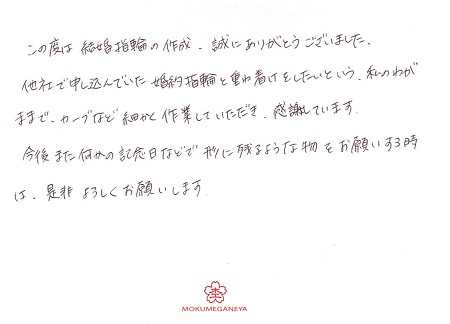 この度は結婚指輪の作成、誠にありがとうございました。
他社で申し込んでいた婚約指輪と重ね着けをしたいという、私のわが
ままで、カーブなど細かく作業していただき、感謝しています。
今後また何かの記念日などで形に残るような物をお願いする時
は、是非よろしくお願いします。
MOKUMEGANEYA